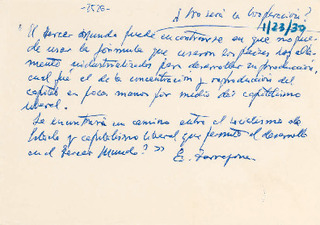 - 7528 -
¿No será la Cooperación?
1/23/39
"El tercer mundo puede encontrarse en que no pue-
de usar la fórmula que usaron los países hoy alta-
mente industrializados para desarrollar su producción,
cual fué el de la concentración y reproducción del
capital en pocas manos por medio del capitalismo
liberal.
Se encontrará un camino entre el socialismo de
Estado y capitalismo liberal que permita el desarrollo
en el tercer Mundo? »
E.